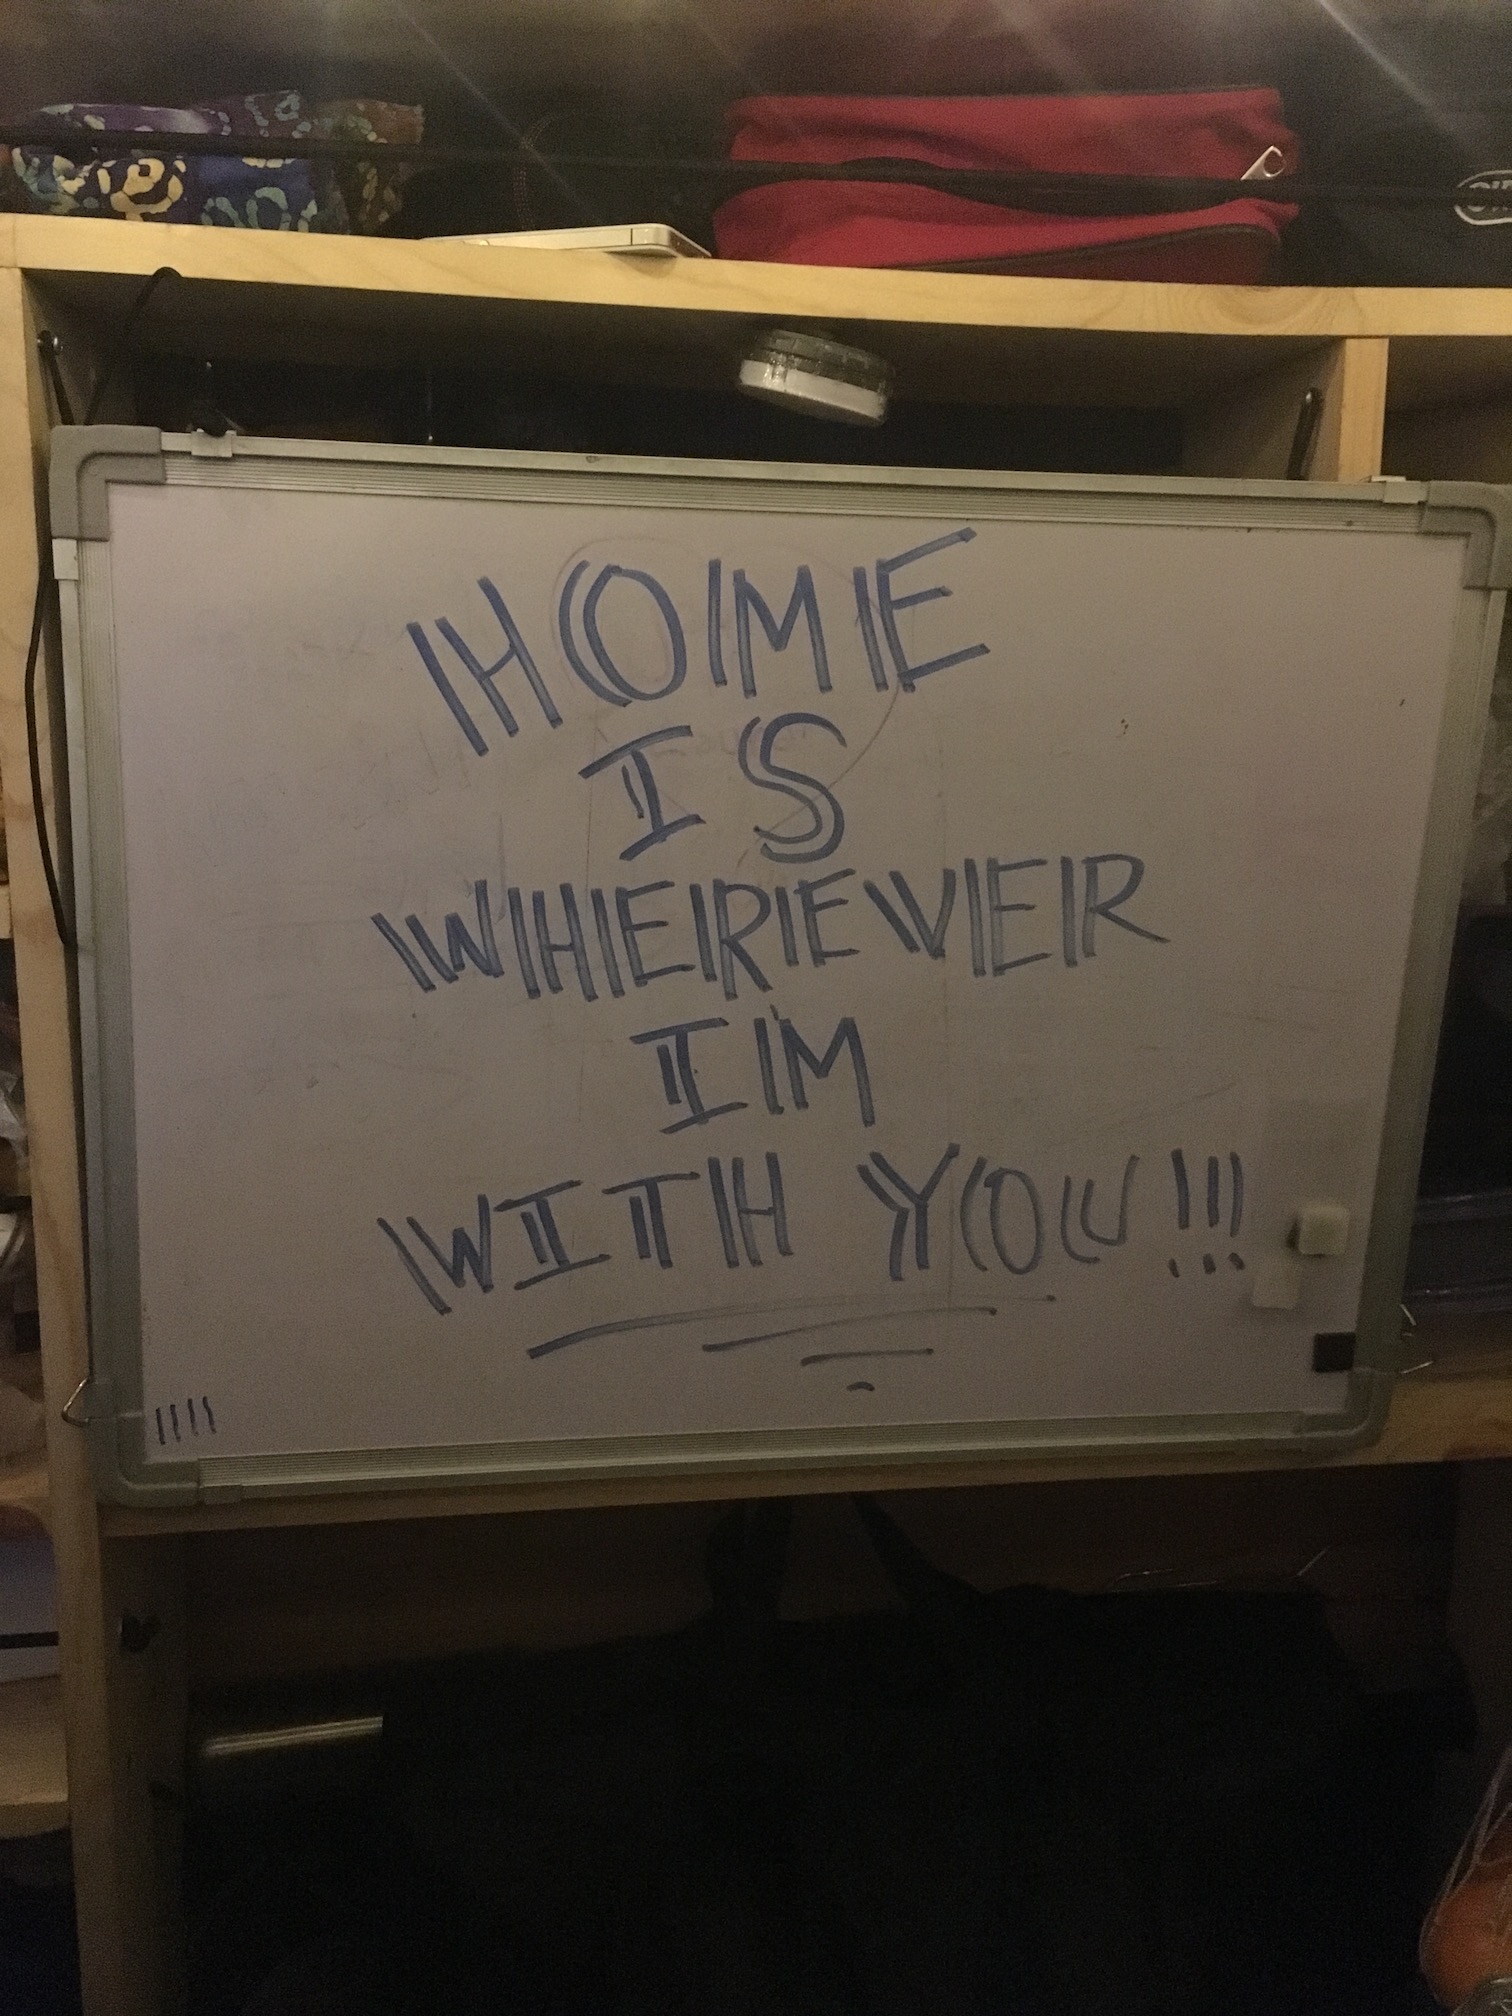 HOME
IS
WHEREVER
I'M
WITH YOU!!!
IIII